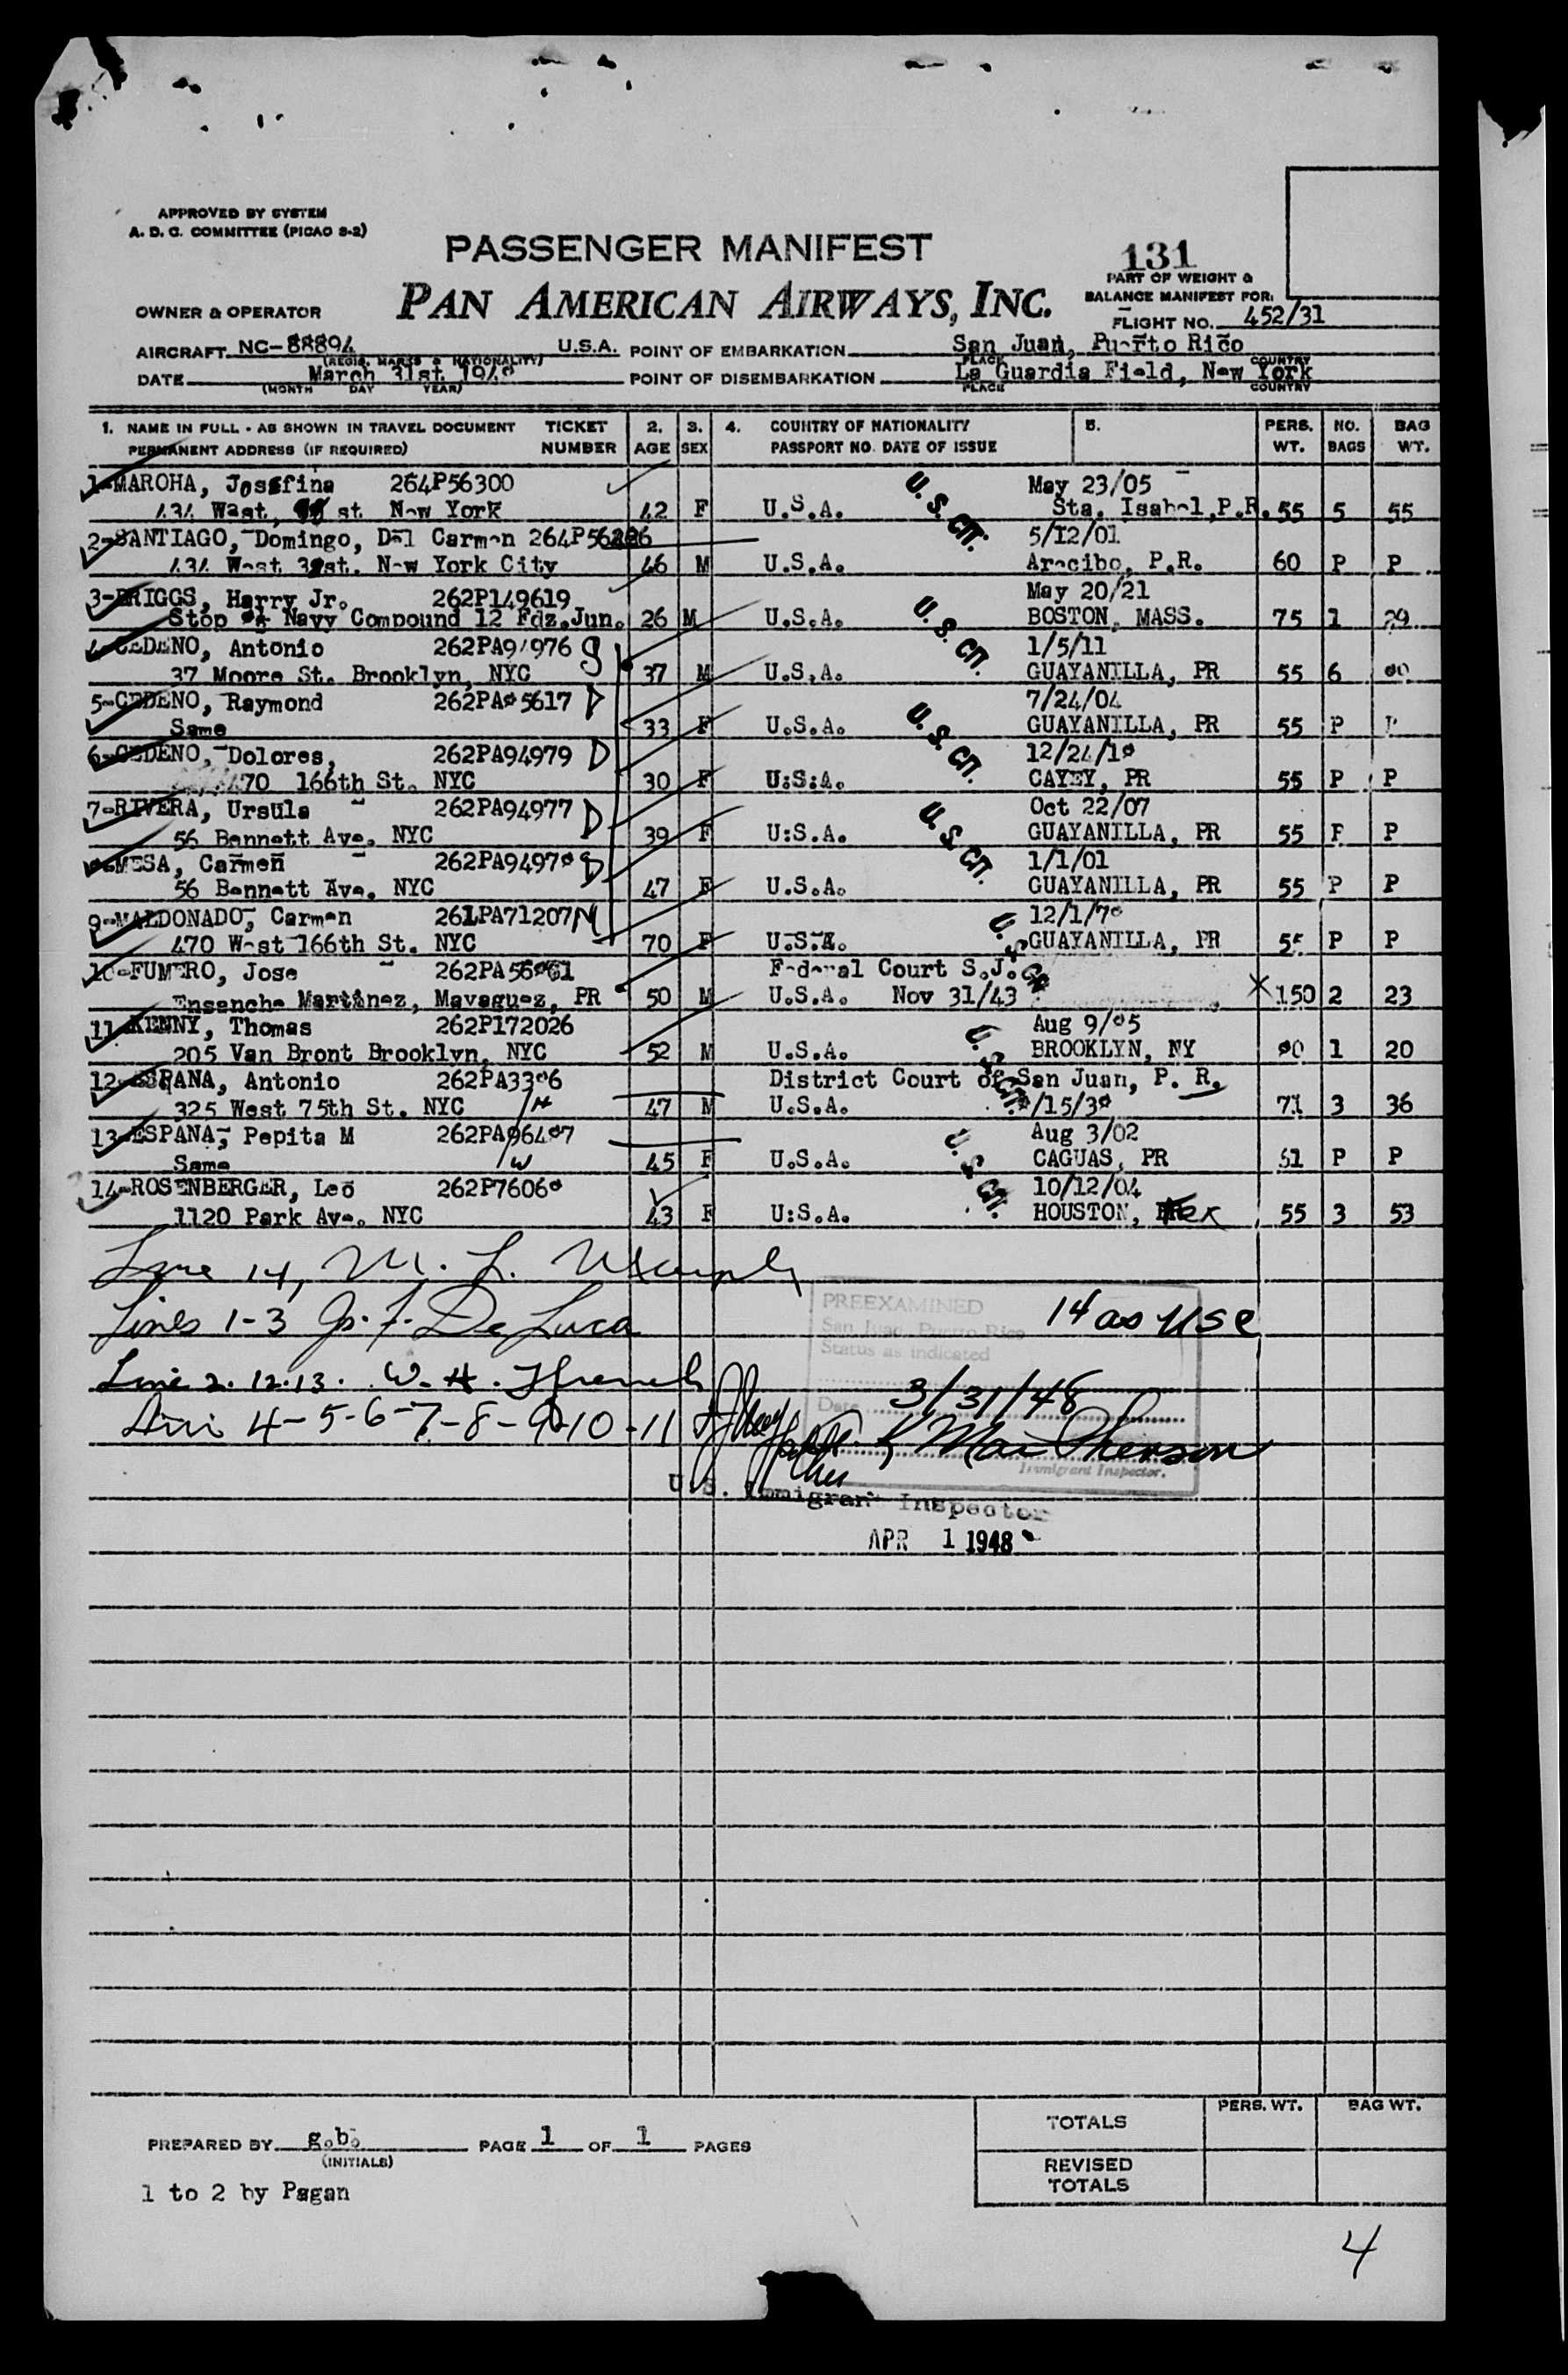 APPROVED BY SYSTEM
A. D. C. COMMITTEE (PICAO S-2)
PASSENGER MANIFEST
131
PART OF WEIGHT &
BALANCE MANIFEST FOR:
OWNER & OPERATOR
PAN AMERICAN AIRWAYS, INC.
FLIGHT NO. 452/31
AIRCRAFT NC-88894 U.S.A. POINT OF EMBARKATION San Juan, Puerto Rico
(REGIS. MARKS & NATIONALITY) PLACE COUNTRY
DATE March 31st, 1948 POINT OF DISEMBARKATION La Guardia Field, New York
(MONTH DAY YEAR) PLACE COUNTRY
1. NAME IN FULL - AS SHOWN IN TRAVEL DOCUMENT TICKET 2. 3. 4. COUNTRY OF NATIONALITY 5. PERS. NO. BAG
PERMANENT ADDRESS (IF REQUIRED) NUMBER AGE SEX PASSPORT NO. DATE OF ISSUE WT. BAGS WT.
1-MAROHA, Josefina 264P56300 May 23/05
434 West, st New York 42 F U.S.A. U.S. CIT. Sta. Isabel, P.R. 55 5 55
2-SANTIAGO, Domingo, Del Carmen 5/12/01
434 West st. New York City 46 M U.S.A. Arecibo, P.R. 60 P P
3-BRIGGS, Harry Jr. 262P149619 May 20/21
Stop Navy Compound 12 Fdz.Jun. 26 M U.S.A. U.S. CIT. BOSTON, MASS. 75 1 29
4-CEDENO, Antonio 262PA94976 S 1/5/11
37 Moore St. Brooklyn, NYC 37 M U.S.A. GUAYANILLA, PR 55 6
5-CEDENO, Raymond 262PA85617 D 7/24/04
Same 33 F U.S.A. U.S. CIT. GUAYANILLA, PR 55 P P
6-CEDENO, Dolores, 262PA94979 D 12/24/18
470 166th St. NYC 30 F U:S:A. CAYEY, PR 55 P P
7-RIVERA, Ursula 262PA94977 D Oct 22/07
56 Bennett Ave. NYC 39 F U:S.A. U.S. CIT. GUAYANILLA, PR 55 P P
8-MESA, Carmen 262PA94978 D 1/1/01
56 Bennett Ave. NYC 47 F U.S.A. GUAYANILLA, PR 55 P P
9-MALDONADO, Carmen 261PA71207 N 12/1/78
470 West 166th St. NYC 70 F U.S.A. U.S. CIT. GUAYANILLA, PR 55 P P
10-FUMERO, Jose Federal Court S.J.
Ensanche Martinez, Mayaguez, PR 50 M U.S.A. Nov 31/43 X 150 2 23
11-KENNY, Thomas 262P172026 Aug 9/85
205 Van Bront Brooklyn, NYC 52 M U.S.A. U.S. CIT. BROOKLYN, NY 80 1 20
12-ESPANA, Antonio 262PA3386 District Court of San Juan, P. R.
325 West 75th St. NYC H 47 M U.S.A. /15/38 71 3 36
13-ESPANA, Pepita M 262PA96487 Aug 3/02
Same W 45 F U.S.A. U.S. CIT. CAGUAS, PR 61 P P
14-ROSENBERGER, Leo 262P76068 10/12/04
1120 Park Ave. NYC 43 F U:S.A. HOUSTON, Tex 55 3 53
Line 14, M. L.
Lines 1-3 De Luca
14 as USC
Line 2. 12. 13. W. H. French
Line 4-5-6-7-8-9-10-11
PREEXAMINED
San Juan, Puerto Rico
Status as indicated
Date 3/31/48
K MacPherson
Immigrant Inspector.
U. S. Immigrant Inspector
APR 1 1948
PREPARED BY g.b. PAGE 1 OF 1 PAGES
(INITIALS)
1 to 2 by Pagan
PERS. WT. BAG WT.
TOTALS
REVISED
TOTALS
4